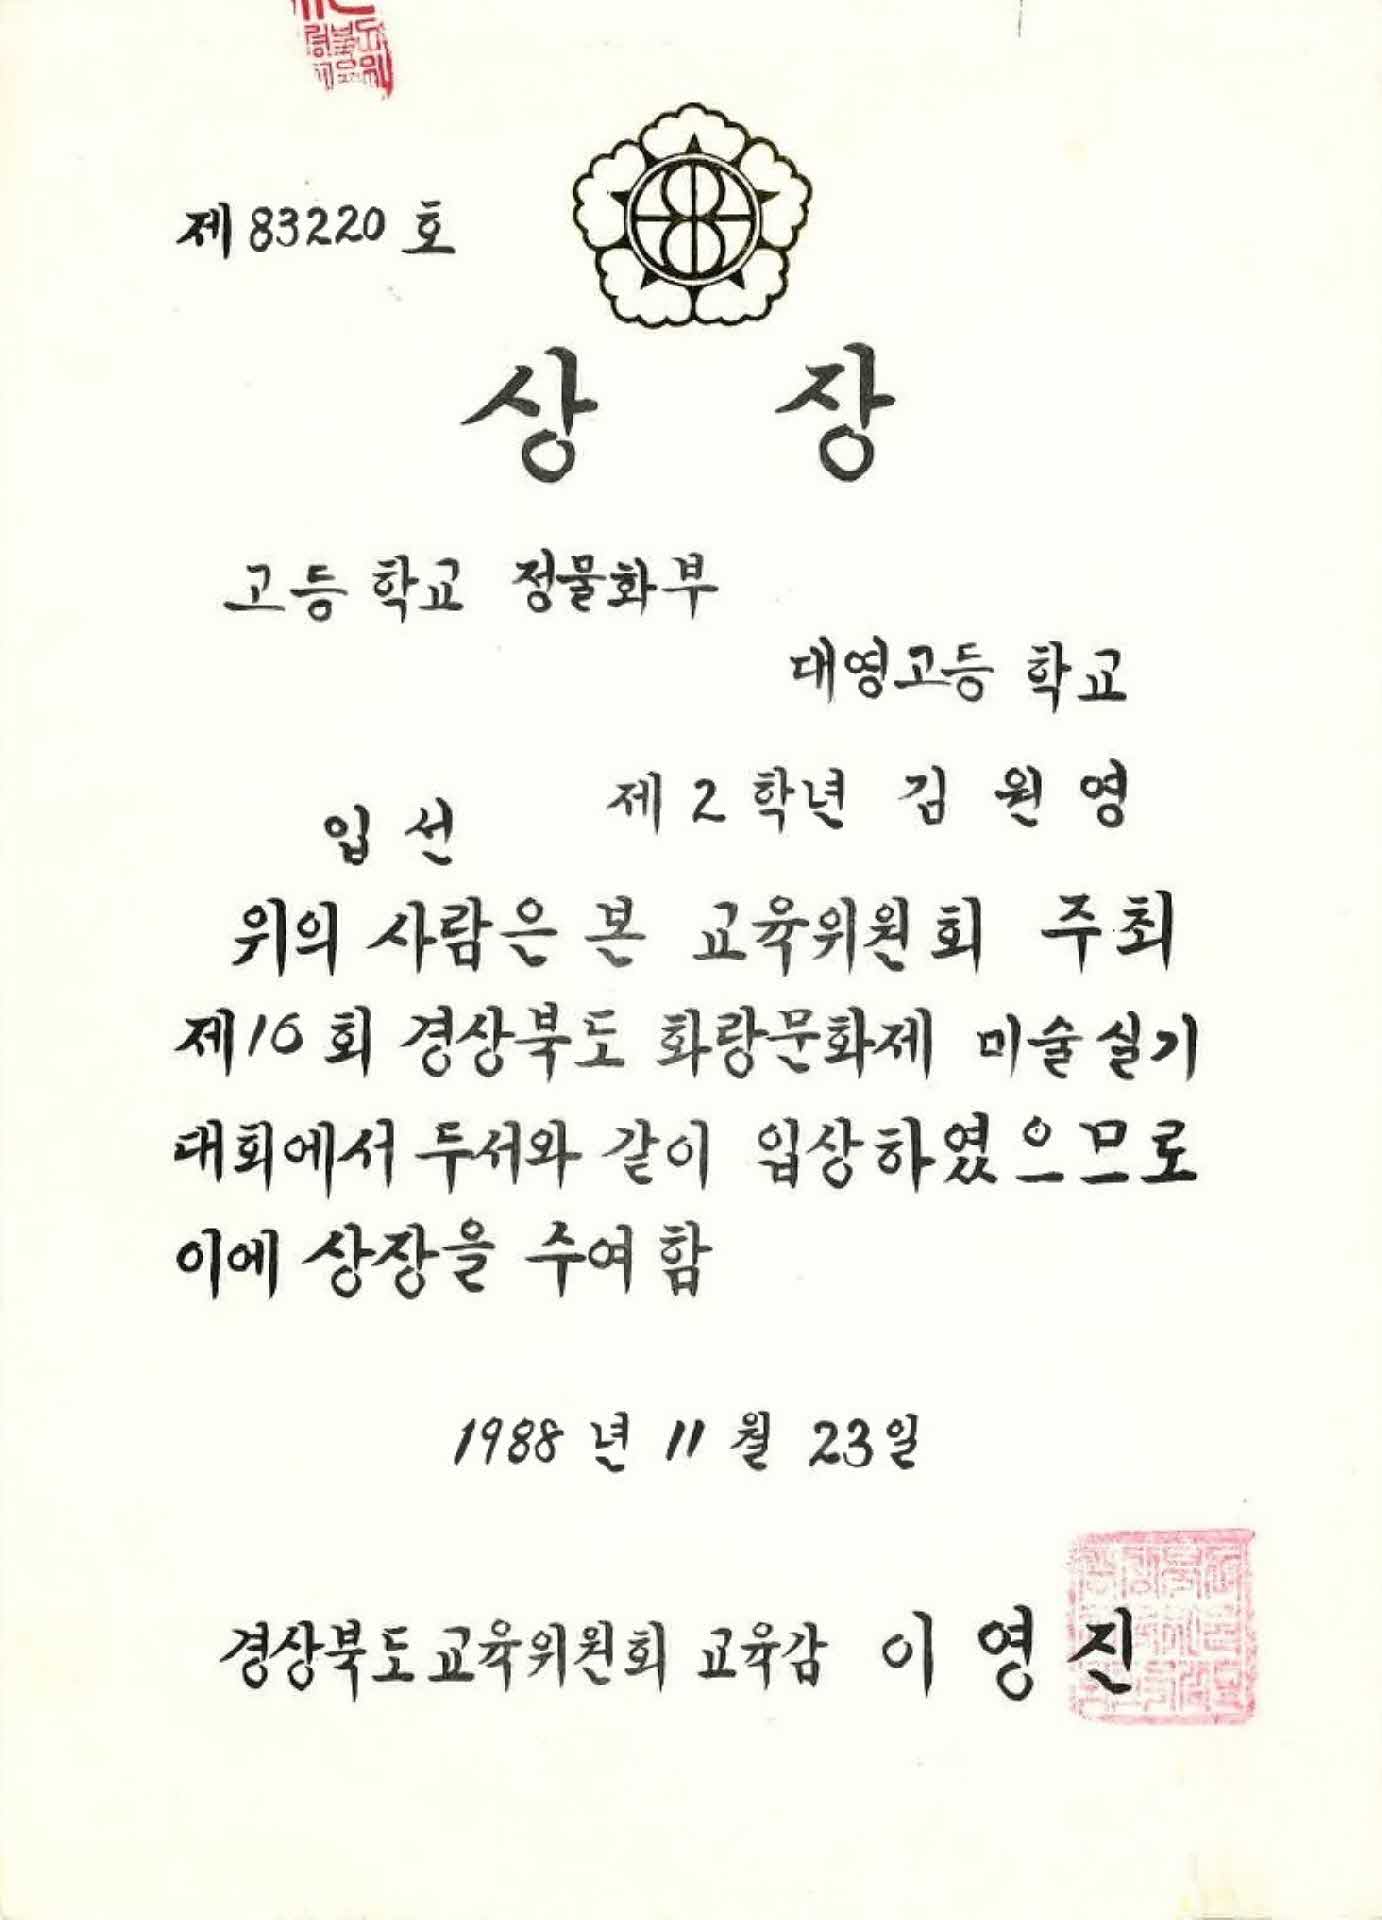 제 83220 호
상 장
고등학교 정물화부
대영고등학교
제 2 학년 김 원 영
입 선
위의 사람은 본 교육위원회 주최
제16회 경상북도 화랑문화제 미술실기
대회에서 두서와 같이 입상하였으므로
이에 상장을 수여함
1988 년 11 월 23 일
경상북도교육위원회 교육감 이 영 진